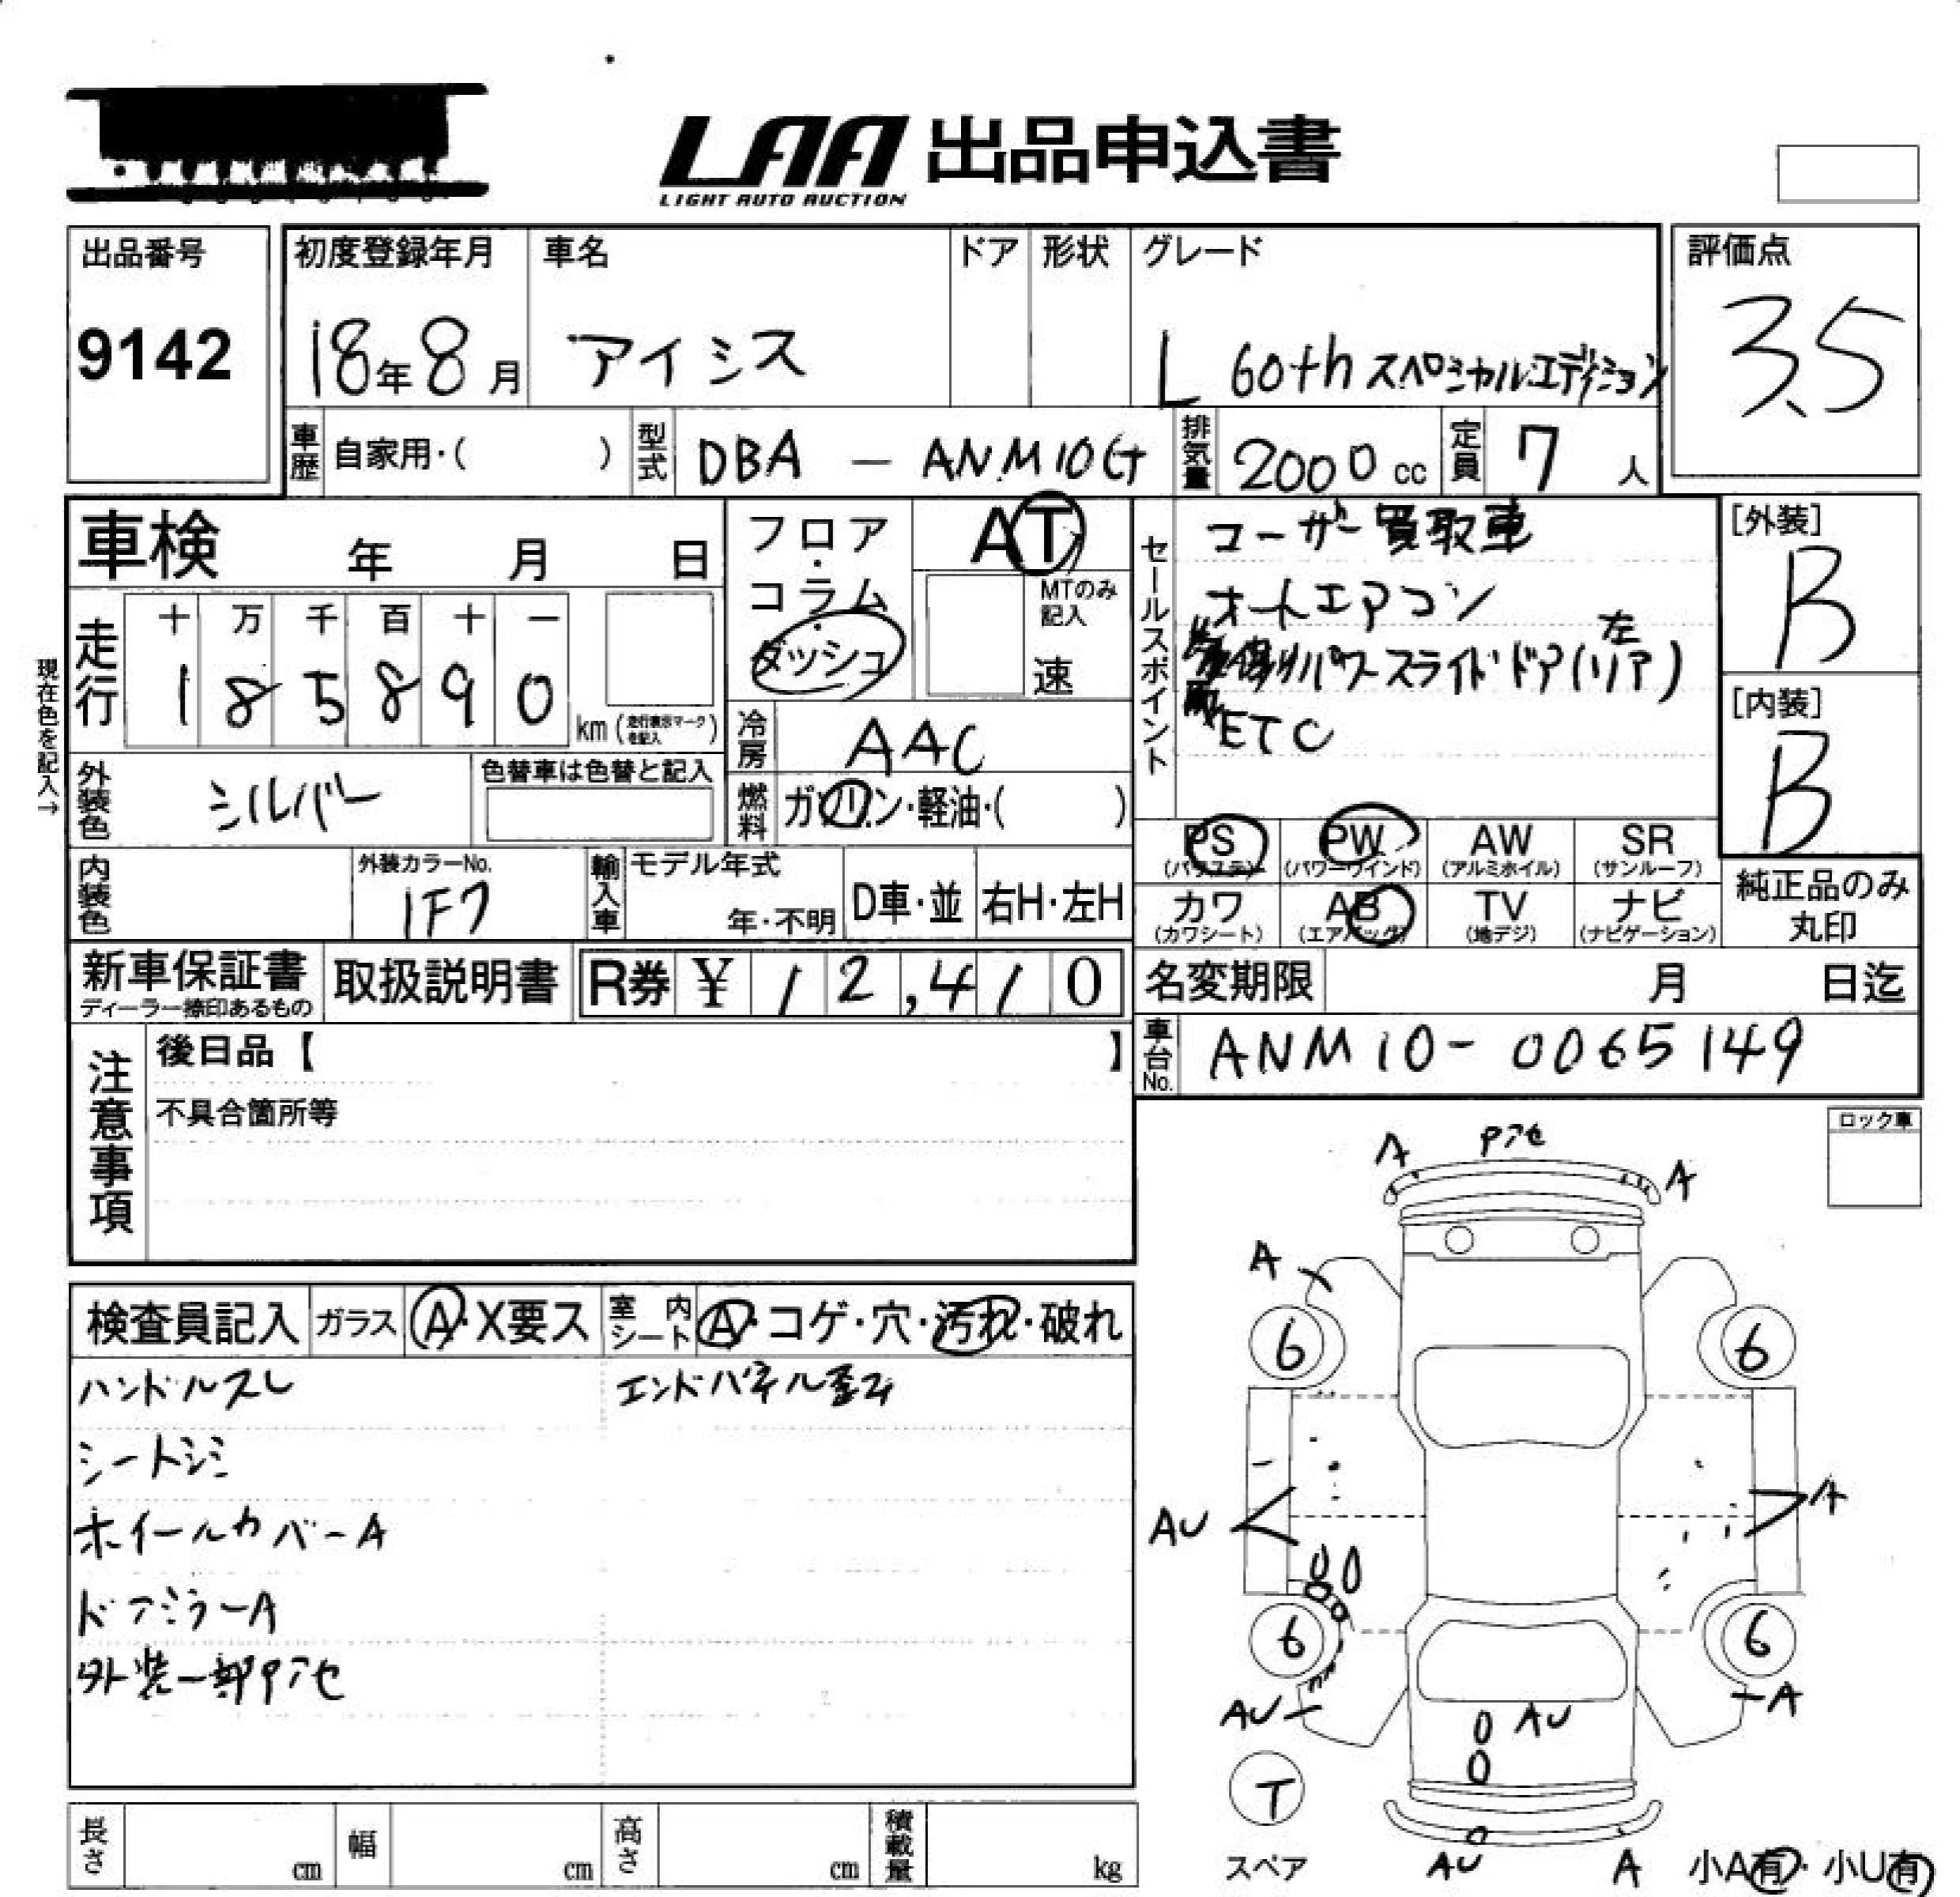 LAA 出品申込書
LIGHT AUTO AUCTION
出品番号
9142
初度登録年月
18年8月
車名
アイシス
ドア
形状
グレード
L 60th スペシャルエディション
評価点
3.5
車歴 自家用・( )
型式 DBA - ANM10G
排気量 2000 cc
定員 7 人
車検 年 月 日
フロア・コラム・ダッシュ
AT
MTのみ記入
速
走行
十 万 千 百 十 一
1 8 5 8 9 0 km (走行表示マークを記入)
現在色を記入→
冷房 AAC
外装色 シルバー
色替車は色替と記入
燃料 ガソリン・軽油・( )
セールスポイント
ユーザー買取車
オートエアコン
パワースライドドア(左リア)
ETC
[外装]
B
[内装]
B
PS (パワステ)
PW (パワーウインド)
AW (アルミホイル)
SR (サンルーフ)
カワ (カワシート)
AB (エアバッグ)
TV (地デジ)
ナビ (ナビゲーション)
純正品のみ丸印
内装色
外装カラーNo.
1F7
輸入車 モデル年式
年・不明
D車・並
右H・左H
新車保証書
ディーラー捺印あるもの
取扱説明書
R券 ¥ 12,410
名変期限 月 日迄
車台No. ANM10-0065149
注意事項
後日品【 】
不具合箇所等
ロック車
検査員記入
ガラス A・X要ス
室内シート A・コゲ・穴・汚れ・破れ
ハンドルスレ
エンドパネル歪み
シートシミ
ホイールカバーA
ドアミラーA
外装一部アセ
A
A
A
6
6
AU
A
6
6
AU
A
AU
T
スペア
AU
A
小A有・小U有
長さ cm
幅 cm
高さ cm
積載量 kg